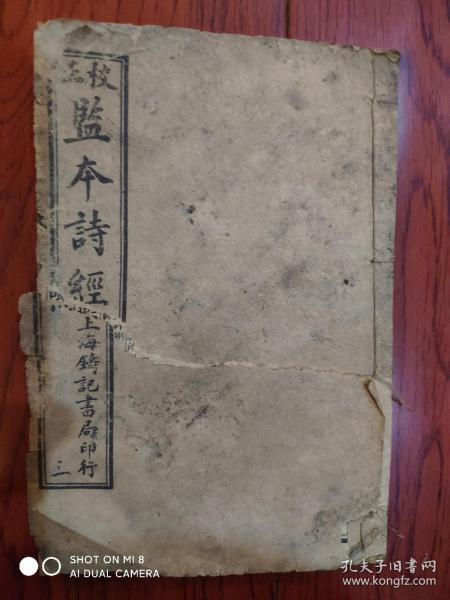 校正
監本詩經
上海鑄記書局印行
三
SHOT ON MI 8
AI DUAL CAMERA
孔夫子旧书网
www.kongfz.com